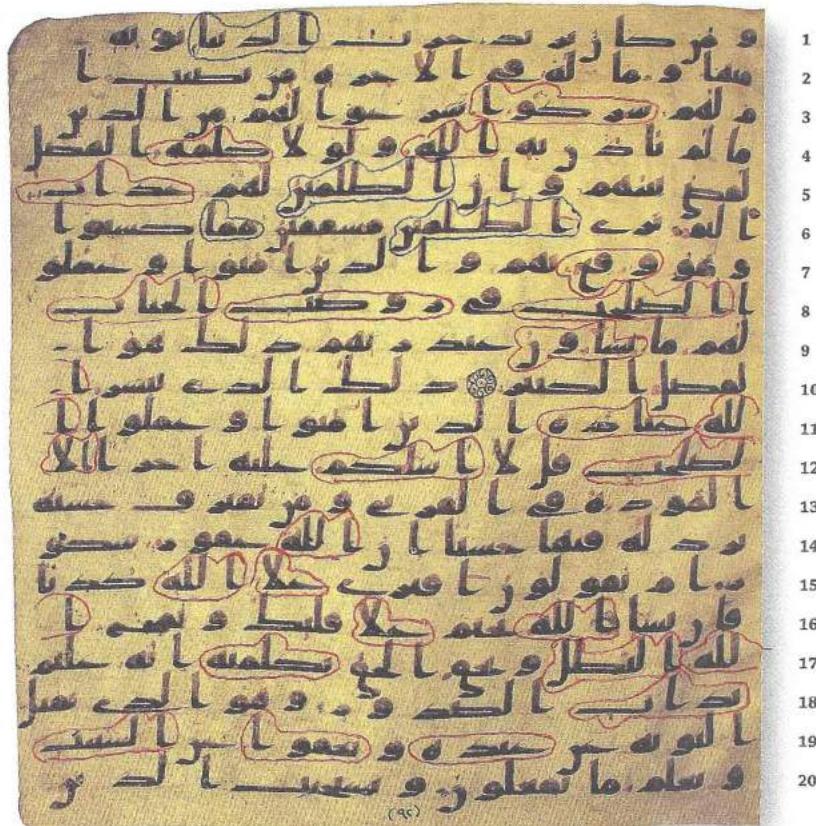 1 ومن كان يريد حرث الدنيا نوته
2 منها وما له في الاخرة من نصيب ا
3 م لهم شركوا شرعوا لهم من الدين
4 ما لم ياذن به الله ولولا كلمة الفصل
5 لقضي بينهم وان الظلمين لهم عذاب
6 اليم ترى الظلمين مشفقين مما كسبوا
7 وهو وقع بهم والذين امنوا وعملو
8 ا الصلحت في روضت الجنات
9 لهم ما يشاون عند ربهم ذلك هو ا
10 لفضل الكبير ذلك الذي يبشر ا
11 لله عباده الذين امنوا وعملوا ا
12 لصلحت قل لا اسلكم عليه اجرا الا
13 المودة في القربى ومن يقترف حسنة
14 نزد له فيها حسنا ان الله غفور شكو
15 ر ام يقولون افترى علا الله كذبا
16 فان يشا الله يختم علا قلبك ويمح ا
17 لله البطل ويحق الحق بكلمته انه عليم
18 بذات الصدور وهو الذي يقبل
19 التوبة عن عبده ويعفوا عن السيت
20 ويعلم ما تفعلون ويستجيب الذين
(٩٤)